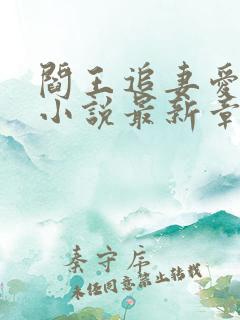 閻王追妻愛
小說最新章
秦守序
未經同意禁止轉載